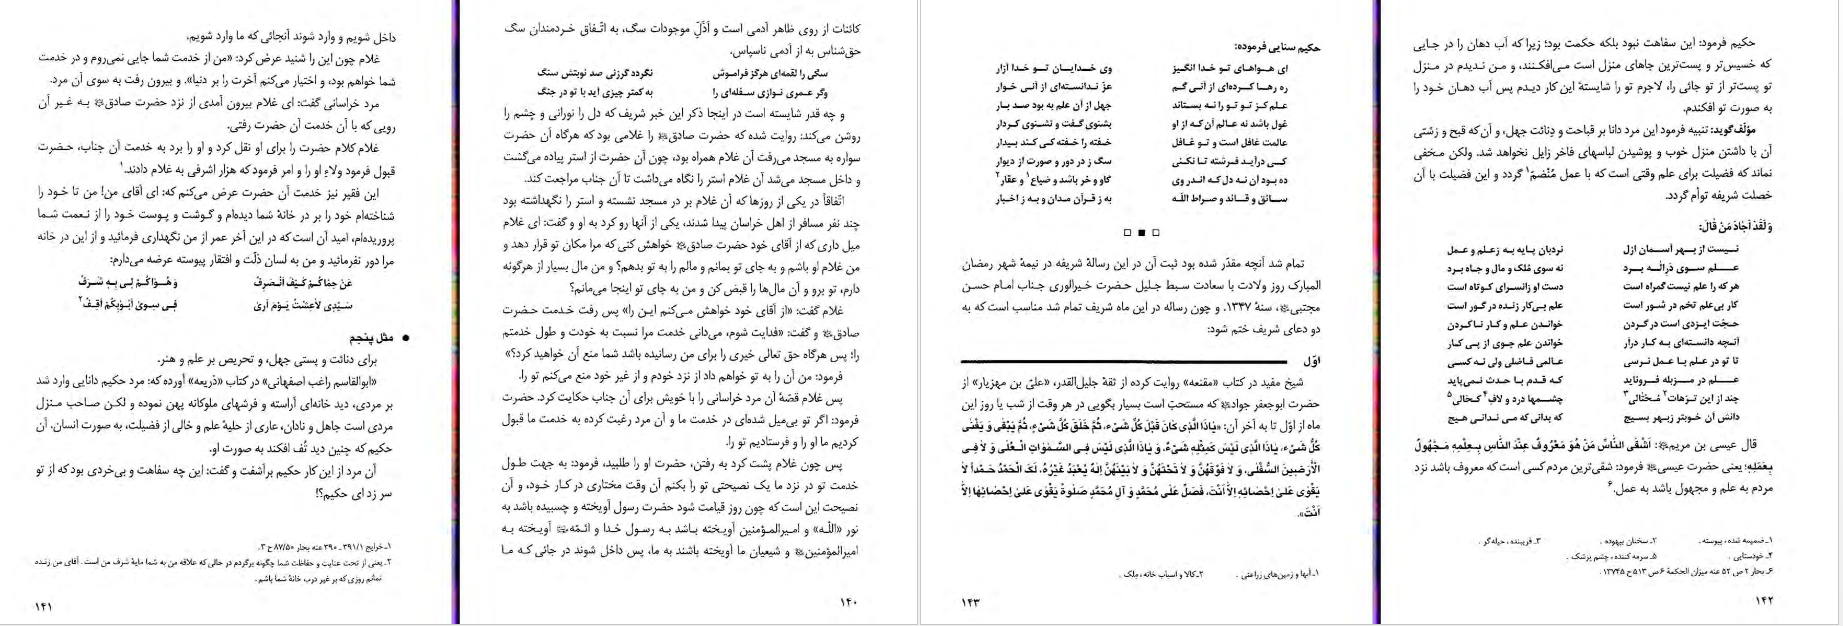 کائنات از روی ظاهر آدمی است و أذَلِّ موجودات سگ، به اتّفاق خردمندان سگ
حق‌شناس به از آدمی ناسپاس.
سگی را لقمه‌ای هرگز فراموش نگردد گرزنی صد نوبتش سنگ
وگر عمری نوازی سفله‌ای را به کمتر چیزی آید با تو در جنگ
و چه قدر شایسته است در اینجا ذکر این خبر شریف که دل را نورانی و چشم را
روشن می‌کند: روایت شده که حضرت صادق را غلامی بود که هرگاه آن حضرت
سواره به مسجد می‌رفت آن غلام همراه بود، چون آن حضرت از استر پیاده می‌گشت
و داخل مسجد می‌شد آن غلام استر را نگاه می‌داشت تا آن جناب مراجعت کند.
اتّفاقاً در یکی از روزها که آن غلام بر در مسجد نشسته و استر را نگهداشته بود
چند نفر مسافر از اهل خراسان پیدا شدند، یکی از آنها رو کرد به او و گفت: ای غلام
میل داری که از آقای خود حضرت صادق خواهش کنی که مرا مکان تو قرار دهد و
من غلام او باشم و به جای تو بمانم و مالم را به تو بدهم؟ و من مال بسیار از هرگونه
دارم، تو برو و آن مال‌ها را قبض کن و من به جای تو اینجا می‌مانم؟
غلام گفت: «از آقای خود خواهش می‌کنم این را» پس رفت خدمت حضرت
صادق و گفت: «فدایت شوم، می‌دانی خدمت مرا نسبت به خودت و طول خدمتم
را؛ پس هرگاه حق تعالی خیری را برای من رسانیده باشد شما منع آن خواهید کرد؟»
فرمود: من آن را به تو خواهم داد از نزد خودم و از غیر خود منع می‌کنم تو را.
پس غلام قصّهٔ آن مرد خراسانی را با خویش برای آن جناب حکایت کرد. حضرت
فرمود: اگر تو بی‌میل شده‌ای در خدمت ما و آن مرد رغبت کرده به خدمت ما قبول
کردیم ما او را و فرستادیم تو را.
پس چون غلام پشت کرد به رفتن، حضرت او را طلبید، فرمود: به جهت طول
خدمت تو در نزد ما یک نصیحتی تو را بکنم آن وقت مختاری در کار خود، و آن
نصیحت این است که چون روز قیامت شود حضرت رسول آویخته و چسبیده باشد به
نور «اللّه» و امیرالمؤمنین آویخته باشد به رسول خدا و ائمّه آویخته به
امیرالمؤمنین و شیعیان ما آویخته باشند به ما، پس داخل شوند در جائی که ما
۱۴۰
داخل شویم و وارد شوند آنجائی که ما وارد شویم.
غلام چون این را شنید عرض کرد: «من از خدمت شما جایی نمی‌روم و در خدمت
شما خواهم بود، و اختیار می‌کنم آخرت را بر دنیا». و بیرون رفت به سوی آن مرد.
مرد خراسانی گفت: ای غلام بیرون آمدی از نزد حضرت صادق به غیر آن
رویی که با آن خدمت آن حضرت رفتی.
غلام کلام حضرت را برای او نقل کرد و او را برد به خدمت آن جناب، حضرت
قبول فرمود ولاءِ او را و امر فرمود که هزار اشرفی به غلام دادند.۱
این فقیر نیز خدمت آن حضرت عرض می‌کنم که: ای آقای من! من تا خود را
شناخته‌ام خود را بر در خانهٔ شما دیده‌ام و گوشت و پوست خود را از نعمت شما
پروریده‌ام، امید آن است که در این آخر عمر از من نگهداری فرمائید و از این در خانه
مرا دور نفرمائید و من به لسان ذلّت و افتقار پیوسته عرضه می‌دارم:
عَنْ حِمٰاکُمْ کَیْفَ اَنْصَرِفُ وَ هَوٰاکُمْ لِی بِهِ شَرَفٌ
سَیِّدِی لاٰعِشْتُ یَوْمَ اَریٰ فِی سِویٰ اَبْوٰابِکُمْ اَقِفُ۲
● مثل پنجم
برای دنائت و پستی جهل، و تحریص بر علم و هنر.
«ابوالقاسم راغب اصفهانی» در کتاب «ذریعه» آورده که: مرد حکیم دانایی وارد شد
بر مردی، دید خانه‌ای آراسته و فرشهای ملوکانه پهن نموده و لکن صاحب منزل
مردی است جاهل و نادان، عاری از حلیهٔ علم و خالی از فضیلت، به صورت انسان. آن
حکیم که چنین دید تُف افکند به صورت او.
آن مرد از این کار حکیم برآشفت و گفت: این چه سفاهت و بی‌خردی بود که از تو
سر زد ای حکیم؟!
۱ـ خرایج ۳۹۱/۱ ـ ۳۹۰ عنه بحار ۸۷/۵۰ ح ۳.
۲ـ یعنی از تحت عنایت و حفاظت شما چگونه برگردم در حالی که علاقه من به شما مایهٔ شرف من است. آقای من زنده
نمانم روزی که بر غیر درب خانهٔ شما باشم.
۱۴۱
حکیم فرمود: این سفاهت نبود بلکه حکمت بود؛ زیرا که آب دهان را در جایی
که خسیس‌تر و پست‌ترین جاهای منزل است می‌افکنند، و من ندیدم در منزل
تو پست‌تر از تو جائی را، لاجرم تو را شایستهٔ این کار دیدم پس آب دهان خود را
به صورت تو افکندم.
مؤلّف‌گوید: تنبیه فرمود این مرد دانا بر قباحت و دِنائت جهل، و آن‌که قبح و زشتی
آن با داشتن منزل خوب و پوشیدن لباسهای فاخر زایل نخواهد شد. ولکن مخفی
نماند که فضیلت برای علم وقتی است که با عمل مُنْضَم۱ گردد و این فضیلت با آن
خصلت شریفه توأم گردد.
وَ لَقَدْ اَجٰادَ مَنْ قٰالَ:
نیست از بهر آسمان ازل نردبان پایه به زعلم و عمل
علم سوی درالٰه برد نه سوی مُلک و مال و جاه برد
هر که را علم نیست گمراه است دست او زانسرای کوتاه است
کار بی‌علم تخم در شور است علم بی‌کار زنده در گور است
حجّت ایزدی است در گردن خواندن علم و کار ناکردن
آنچه دانسته‌ای به کار درآر خواندن علم جوی از پی کار
تا تو در علم با عمل نرسی عالمی فاضلی ولی نه کسی
علم در مزبله فروناید که قدم با حدث نمی‌پاید
چند از این تزهات۲ مُحْتالی۳ چشمها درد و لافِ۴ کحالی۵
دانش آن خوبتر زبهر بسیج که بدانی که می ندانی هیچ
قال عیسی بن مریم: اَشْقَی النّٰاسِ مَنْ هُوَ مَعْرُوفٌ عِنْدَ النّٰاسِ بِعِلْمِهِ مَجْهُولٌ
بِعَمَلِهِ؛ یعنی حضرت عیسی فرمود: شقی‌ترین مردم کسی است که معروف باشد نزد
مردم به علم و مجهول باشد به عمل.۶
۱ـ ضمیمه شده، پیوسته. ۲ـ سخنان بیهوده. ۳ـ فریبنده، حیله‌گر.
۴ـ خودستایی. ۵ـ سرمه کننده، چشم پزشک.
۶ـ بحار ۲ ص ۵۲ عنه میزان الحکمة ۶ ص ۵۱۳ ح ۱۳۷۴۵.
۱۴۲
حکیم سنایی فرموده:
ای هواهای تو خدا انگیز وی خدایان تو خدا آزار
ره رها کرده‌ای از آنی گم عزّ ندانسته‌ای از آنی خوار
علم کز تو تو را نه بستاند جهل از آن علم به بود صد بار
غول باشد نه عالم آن‌که از او بشنوی گفت و نشنوی کردار
عالمت غافل است و تو غافل خفته را خفته کی کند بیدار
کی درآید فرشته تا نکنی سگ ز در دور و صورت از دیوار
ده بود آن نه دل که اندر وی گاو و خر باشد و ضیاع۱ و عقار۲
سائق و قائد و صراط اللّه به ز قرآن مدان و به ز اخبار
تمام شد آنچه مقدّر شده بود ثبت آن در این رسالهٔ شریفه در نیمهٔ شهر رمضان
المبارک روز ولادت با سعادت سبط جلیل حضرت خیرالوری جناب امام حسن
مجتبی، سنهٔ ۱۳۴۷. و چون رساله در این ماه شریف تمام شد مناسب است که به
دو دعای شریف ختم شود:
اوّل
شیخ مفید در کتاب «مقنعه» روایت کرده از ثقهٔ جلیل‌القدر، «علیّ بن مهزیار» از
حضرت ابوجعفر جواد که مستحبّ است بسیار بگویی در هر وقت از شب یا روز این
ماه از اوّل تا به آخر آن: «یٰاذَا الَّذِی کٰانَ قَبْلَ کُلِّ شَیْءٍ، ثُمَّ خَلَقَ کُلَّ شَیْءٍ، ثُمَّ یَبْقیٰ وَ یَفْنیٰ
کُلُّ شَیْءٍ، یٰاذَا الَّذِی لَیْسَ کَمِثْلِهِ شَیْءٌ، وَ یٰاذَا الَّذِی لَیْسَ فِی السَّمٰوٰاتِ الْعُلیٰ، وَ لاٰ فِی
الْأَرَضِینَ السُّفْلیٰ، وَ لاٰ فَوْقَهُنَّ وَ لاٰ تَحْتَهُنَّ وَ لاٰ بَیْنَهُنَّ اِلٰهٌ یُعْبَدُ غَیْرُهُ، لَکَ الْحَمْدُ حَمْداً لاٰ
یَقْویٰ عَلیٰ اِحْصٰائِهِ اِلاّٰ اَنْتَ، فَصَلِّ عَلیٰ مُحَمَّدٍ وَ آلِ مُحَمَّدٍ صَلٰوةً لاٰ یَقْویٰ عَلیٰ اِحْصٰائِهٰا اِلاّٰ
اَنْتَ».
۱ـ آبها و زمین‌های زراعتی. ۲ـ کالا و اسباب خانه، مِلک.
۱۴۳